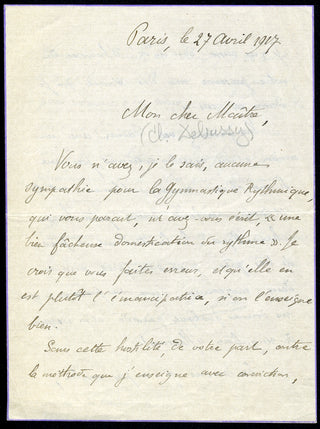 Paris, le 27 avril 1917
Mon cher Maître,
(Cl. Debussy)
Vous n'avez, je le sais, aucune
sympathie pour la Gymnastique Rythmique,
qui vous parait, m'avez-vous écrit, « une
bien fâcheuse domestication du rythme ». Je
crois que vous faites erreur, et qu'elle en
est plutôt l'émancipatrice, si on l'enseigne
bien.
Sans cette hostilité, de votre part, contre
la méthode que j'enseigne avec conviction,